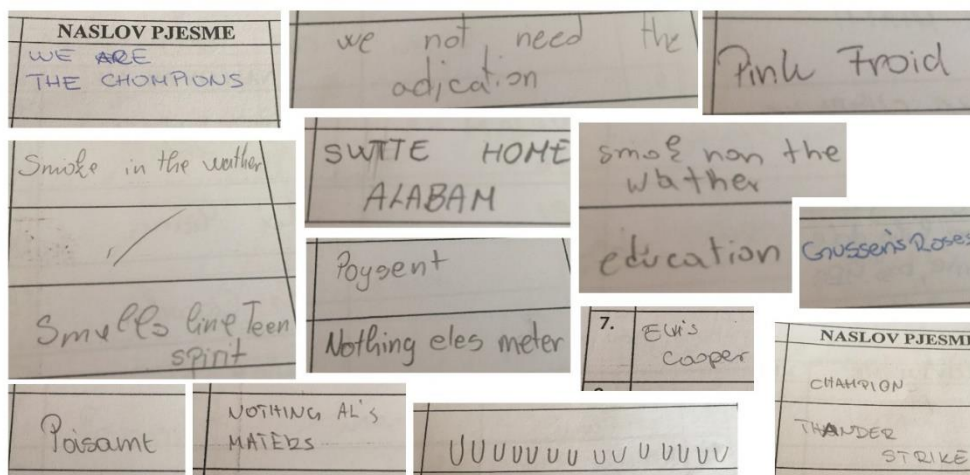 NASLOV PJESME
WE ARE
THE CHOMPIONS
we not need the
adication
Pink Froid
Smoke in the wather
Smells line Teen
spirit
SWTTE HOME
ALABAM
smok non the
wather
education
Gnussen's Roses
Poysent
Nothing eles meter
7.
Elvis
Cooper
NASLOV PJESME
CHAMPION
THANDER
STRIKE
Poisamt
NOTHING AL'S
MATERS
UUUUUUU UU UUUUU